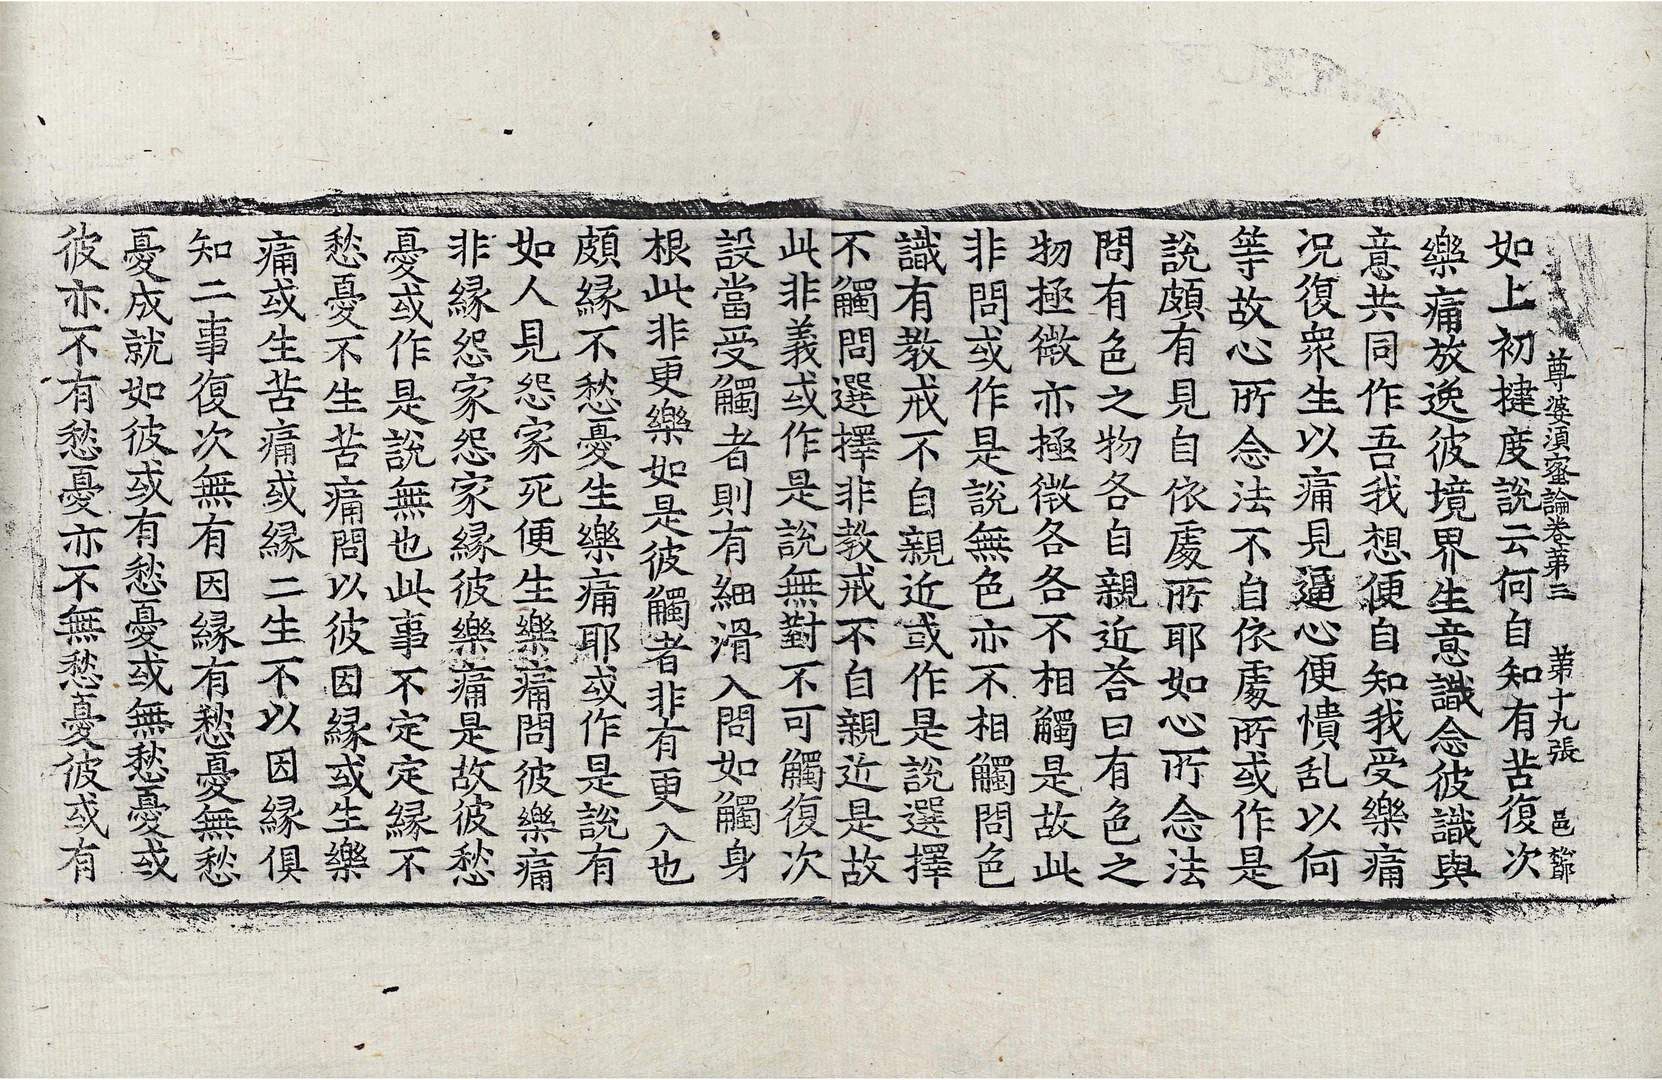 尊婆須蜜論卷第三 第十九張 邑
如上初揵度說云何自知有苦復次
樂痛放逸彼境界生意識念彼識與
意共同作吾我想便自知我受樂痛
況復衆生以痛見逼心便憒乱以何
等故心所念法不自依處所或作是
說頗有見自依處所耶如心所念法
問有色之物各自親近荅曰有色之
物極微亦極微各各不相觸是故此
非問或作是說無色亦不相觸問色
識有教戒不自親近或作是說選擇
不觸問選擇非教戒不自親近是故
此非義或作是說無對不可觸復次
設當受觸者則有細滑入問如觸身
根此非更樂如是彼觸者非有更入也
頗緣不愁憂生樂痛耶或作是說有
如人見怨家死便生樂痛問彼樂痛
非緣怨家怨家緣彼樂痛是故彼愁
憂或作是說無也此事不定定緣不
愁憂不生苦痛問以彼因緣或生樂
痛或生苦痛或緣二生不以因緣俱
知二事復次無有因緣有愁憂無愁
憂成就如彼或有愁憂或無愁憂或
彼亦不有愁憂亦不無愁憂彼或有